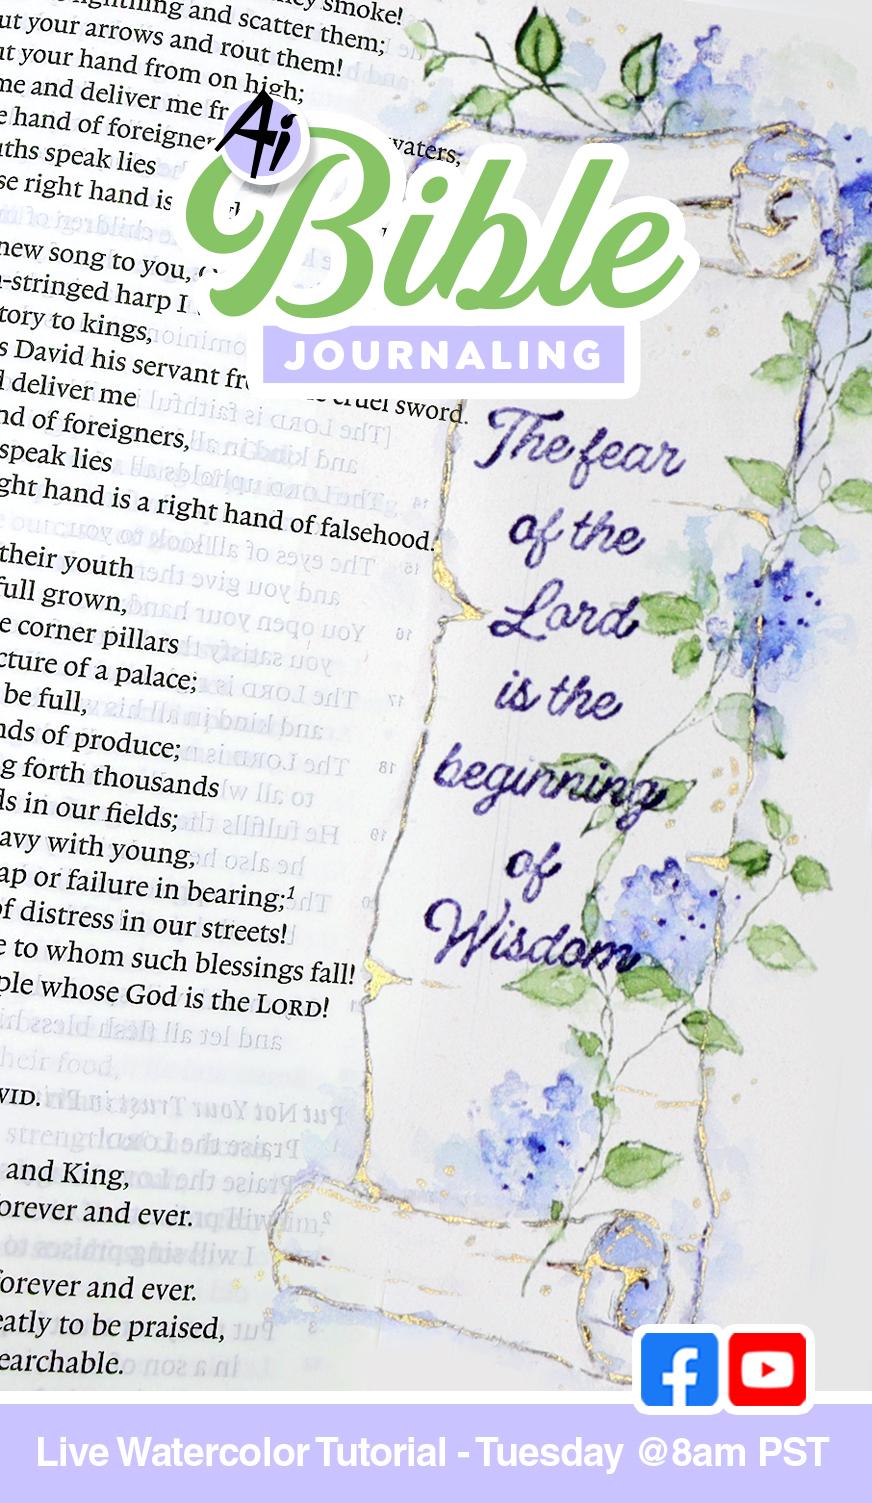 ey smoke!
ghtning and scatter them;
ut your arrows and rout them!
ut your hand from on high;
me and deliver me fr
waters,
e hand of foreigner
uths speak lies
se right hand is
new song to you,
-stringed harp I
tory to kings,
s David his servant fr
cruel sword.
d deliver me
nd of foreigners,
speak lies
ght hand is a right hand of falsehood.
their youth
full grown,
e corner pillars
cture of a palace;
be full,
nds of produce;
g forth thousands
ds in our fields;
avy with young,
ap or failure in bearing;1
of distress in our streets!
e to whom such blessings fall!
ple whose God is the LORD!
VID.
and King,
orever and ever.
forever and ever.
eatly to be praised,
earchable.
Ai
Bible
JOURNALING
The fear
of the
Lord
is the
beginning
of
Wisdom
Live Watercolor Tutorial - Tuesday @8am PST